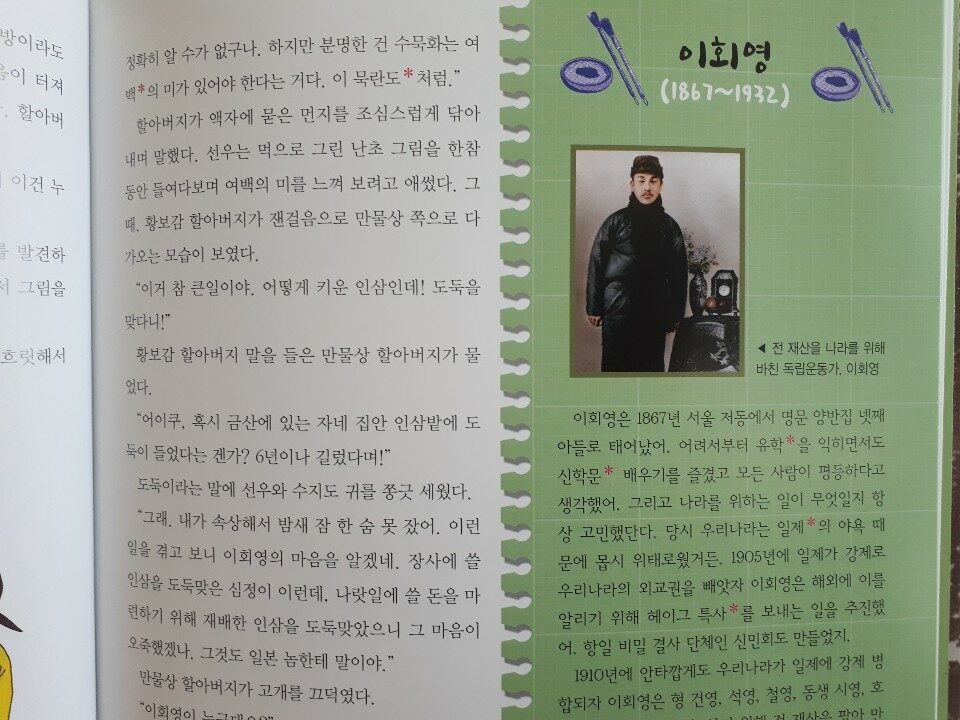 방이라도
음이 터져
할아버
이건 누
를 발견하
서 그림을
흐릿해서
정확히 알 수가 없구나. 하지만 분명한 건 수묵화는 여
백*의 미가 있어야 한다는 거다. 이 묵란도*처럼.”
할아버지가 액자에 묻은 먼지를 조심스럽게 닦아
내며 말했다. 선우는 먹으로 그린 난초 그림을 한참
동안 들여다보며 여백의 미를 느껴 보려고 애썼다. 그
때, 황보감 할아버지가 잰걸음으로 만물상 쪽으로 다
가오는 모습이 보였다.
“이거 참 큰일이야. 어떻게 키운 인삼인데! 도둑을
맞다니!”
황보감 할아버지 말을 들은 만물상 할아버지가 물
었다.
“어이쿠, 혹시 금산에 있는 자네 집안 인삼밭에 도
둑이 들었다는 겐가? 6년이나 길렀다며!”
도둑이라는 말에 선우와 수지도 귀를 쫑긋 세웠다.
“그래. 내가 속상해서 밤새 잠 한 숨 못 잤어. 이런
일을 겪고 보니 이회영의 마음을 알겠네. 장사에 쓸
인삼을 도둑맞은 심정이 이런데, 나랏일에 쓸 돈을 마
련하기 위해 재배한 인삼을 도둑맞았으니 그 마음이
오죽했겠나. 그것도 일본 놈한테 말이야.”
만물상 할아버지가 고개를 끄덕였다.
“이회영이 누군데요?”
이회영
(1867~1932)
◀ 전 재산을 나라를 위해
바친 독립운동가, 이회영
이회영은 1867년 서울 저동에서 명문 양반집 넷째
아들로 태어났어. 어려서부터 유학*을 익히면서도
신학문* 배우기를 즐겼고 모든 사람이 평등하다고
생각했어. 그리고 나라를 위하는 일이 무엇일지 항
상 고민했단다. 당시 우리나라는 일제*의 야욕 때
문에 몹시 위태로웠거든. 1905년에 일제가 강제로
우리나라의 외교권을 빼앗자 이회영은 해외에 이를
알리기 위해 헤이그 특사*를 보내는 일을 추진했
어. 항일 비밀 결사 단체인 신민회도 만들었지.
1910년에 안타깝게도 우리나라가 일제에 강제 병
합되자 이회영은 형 건영, 석영, 철영, 동생 시영, 호